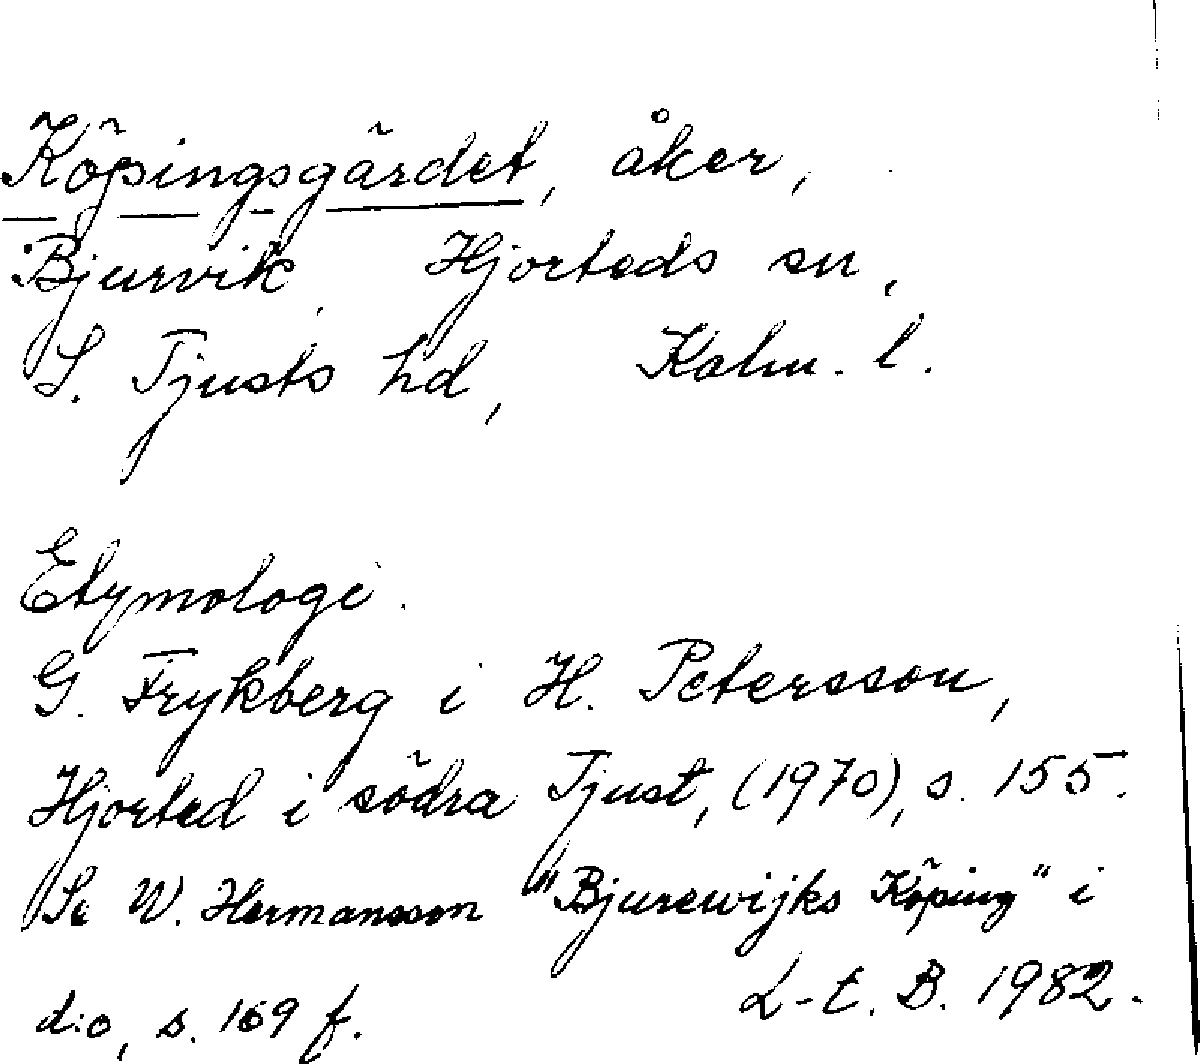 Köpingsgärdet, åker,
Bjurvik, Hjorteds sn,
S. Tjusts hd, Kalm. l.
Etymologi.
G. Frykberg i H. Petersson,
Hjorted i södra Tjust, (1970), s. 155.
Se W. Hermansson "Bjurewijks Köping" i
d:o, s. 169 f. L-t. B. 1982.